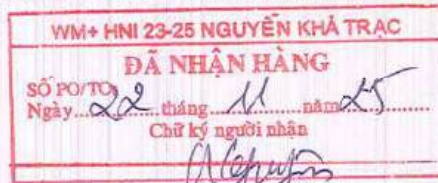 WM+ HNI 23-25 NGUYỄN KHẢ TRẠC
ĐÃ NHẬN HÀNG
SỐ PO/TO
Ngày...22...tháng...11...năm 25...
Chữ ký người nhận